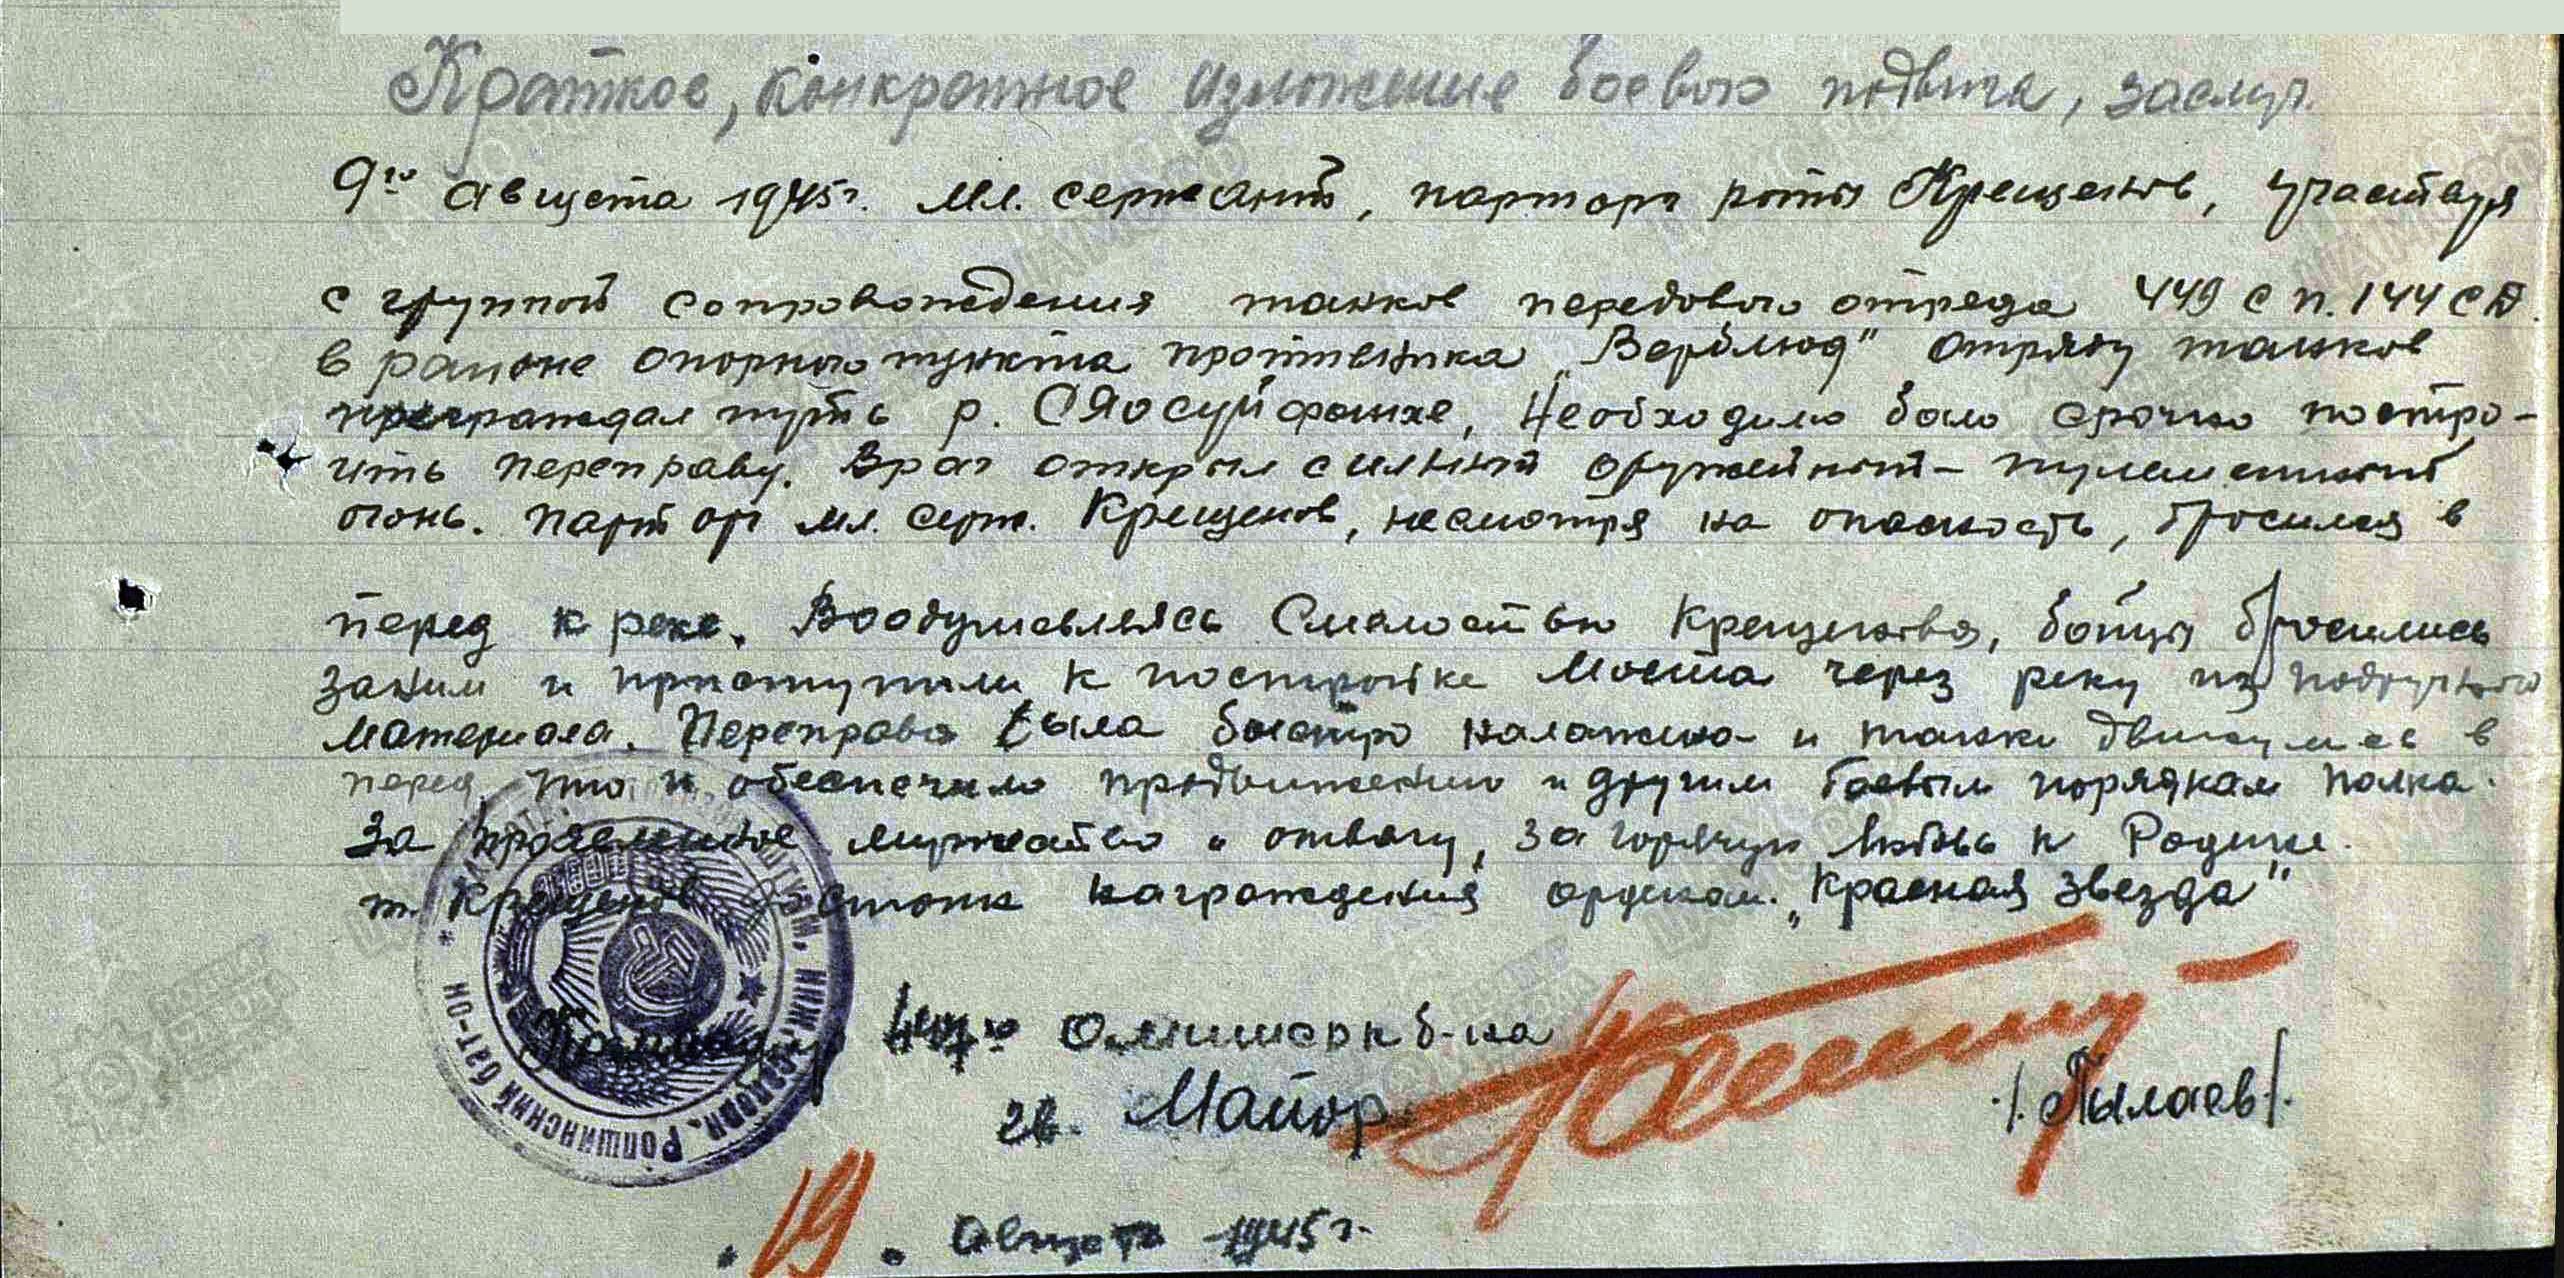 Краткое, конкретное изложение боевого подвига, заслуг.
9го августа 1945г. мл. сержант, парторг роты Крещенов, участвуя
с группой сопровождения танков передового отреда 449 сп. 144 СД.
в районе опорного пункта противника „Верблюд" отряду танков
преграждал путь р. Сяосуйфынхе, Необходимо было срочно постро-
ить переправу. Враг открыл сильный оружейный-пулеметный
огонь. Парторг мл. серж. Крещенов, несмотря на опасность, бросился в
перед к реке. Воодушевляясь Смелостью Крещенова, бойцы бросились
заним и приступили к постройке Моста через реку из подручного
материала. Переправа была быстро налажена и танки двинулись в
перед, что и обеспечило продвижению и другим боевым порядкам полка.
За проявленное мужество и отвагу, за горячую любовь к Родине.
т. Крещенов достоин награждения орденом. „Красная звезда"
Командир Олминск б-на
гв. Майор /Пылаев/.
. 19 . Августа 1945г.
инж. сапёрн. Ропшинский бат-он